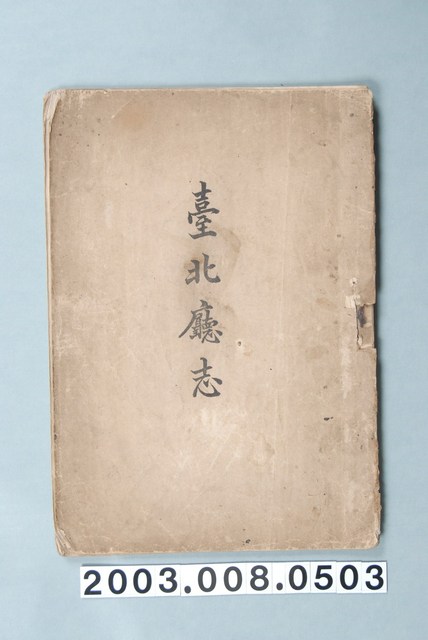 臺北廳志
2003.008.0503